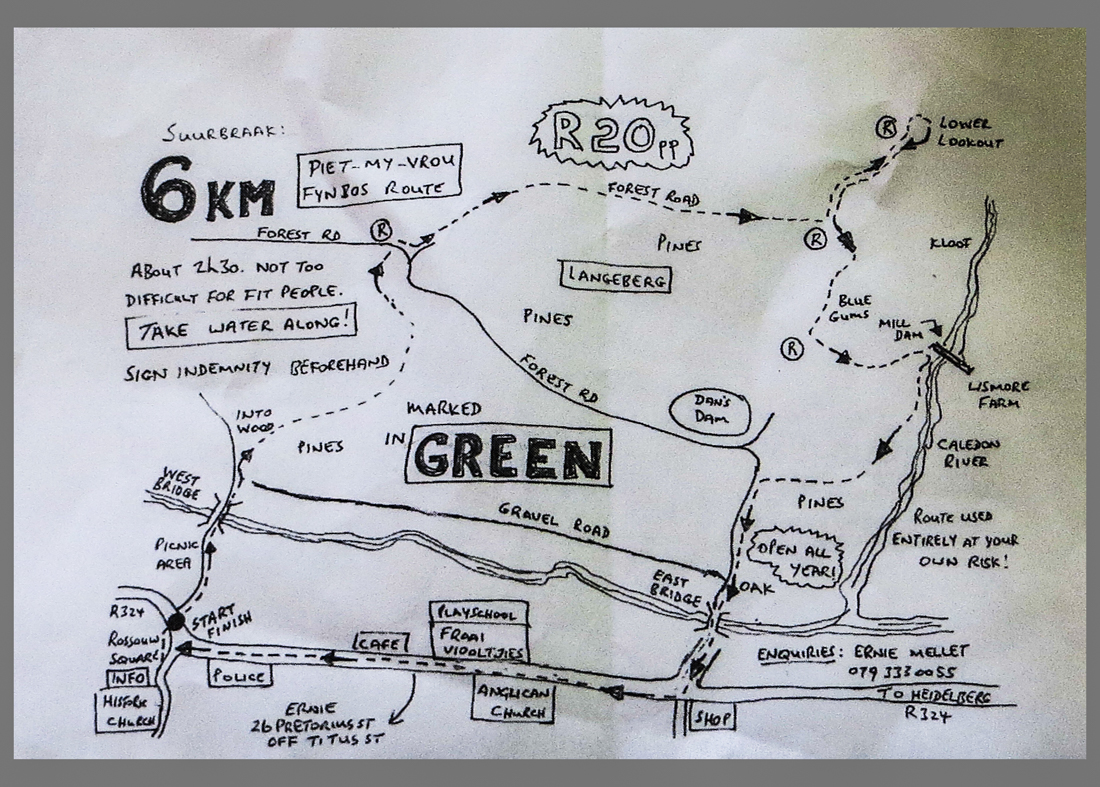 SUURBRAAK:
6KM
PIET-MY-VROU
FYNBOS ROUTE
R20PP
R
LOWER
LOOKOUT
FOREST ROAD
R
FOREST RD
R
PINES
KLOOF
ABOUT 2h30. NOT TOO
DIFFICULT FOR FIT PEOPLE.
TAKE WATER ALONG!
SIGN INDEMNITY BEFOREHAND
LANGEBERG
PINES
BLUE
GUMS
MILL
DAM
R
LISMORE
FARM
FOREST RD
DAN'S
DAM
INTO
WOOD
MARKED
IN GREEN
PINES
CALEDON
RIVER
WEST
BRIDGE
PINES
GRAVEL ROAD
ROUTE USED
ENTIRELY AT YOUR
OWN RISK!
OPEN ALL
YEAR!
PICNIC
AREA
EAST
BRIDGE
OAK
R324
START
FINISH
ROSSOUW
SQUARE
INFO
HISTORIC
CHURCH
POLICE
CAFE
PLAYSCHOOL
FRAAI
VIOOLTJIES
ANGLICAN
CHURCH
ERNIE
26 PRETORIUS ST
OFF TITUS ST
SHOP
ENQUIRIES: ERNIE MELLET
079 333 0055
TO HEIDELBERG
R324